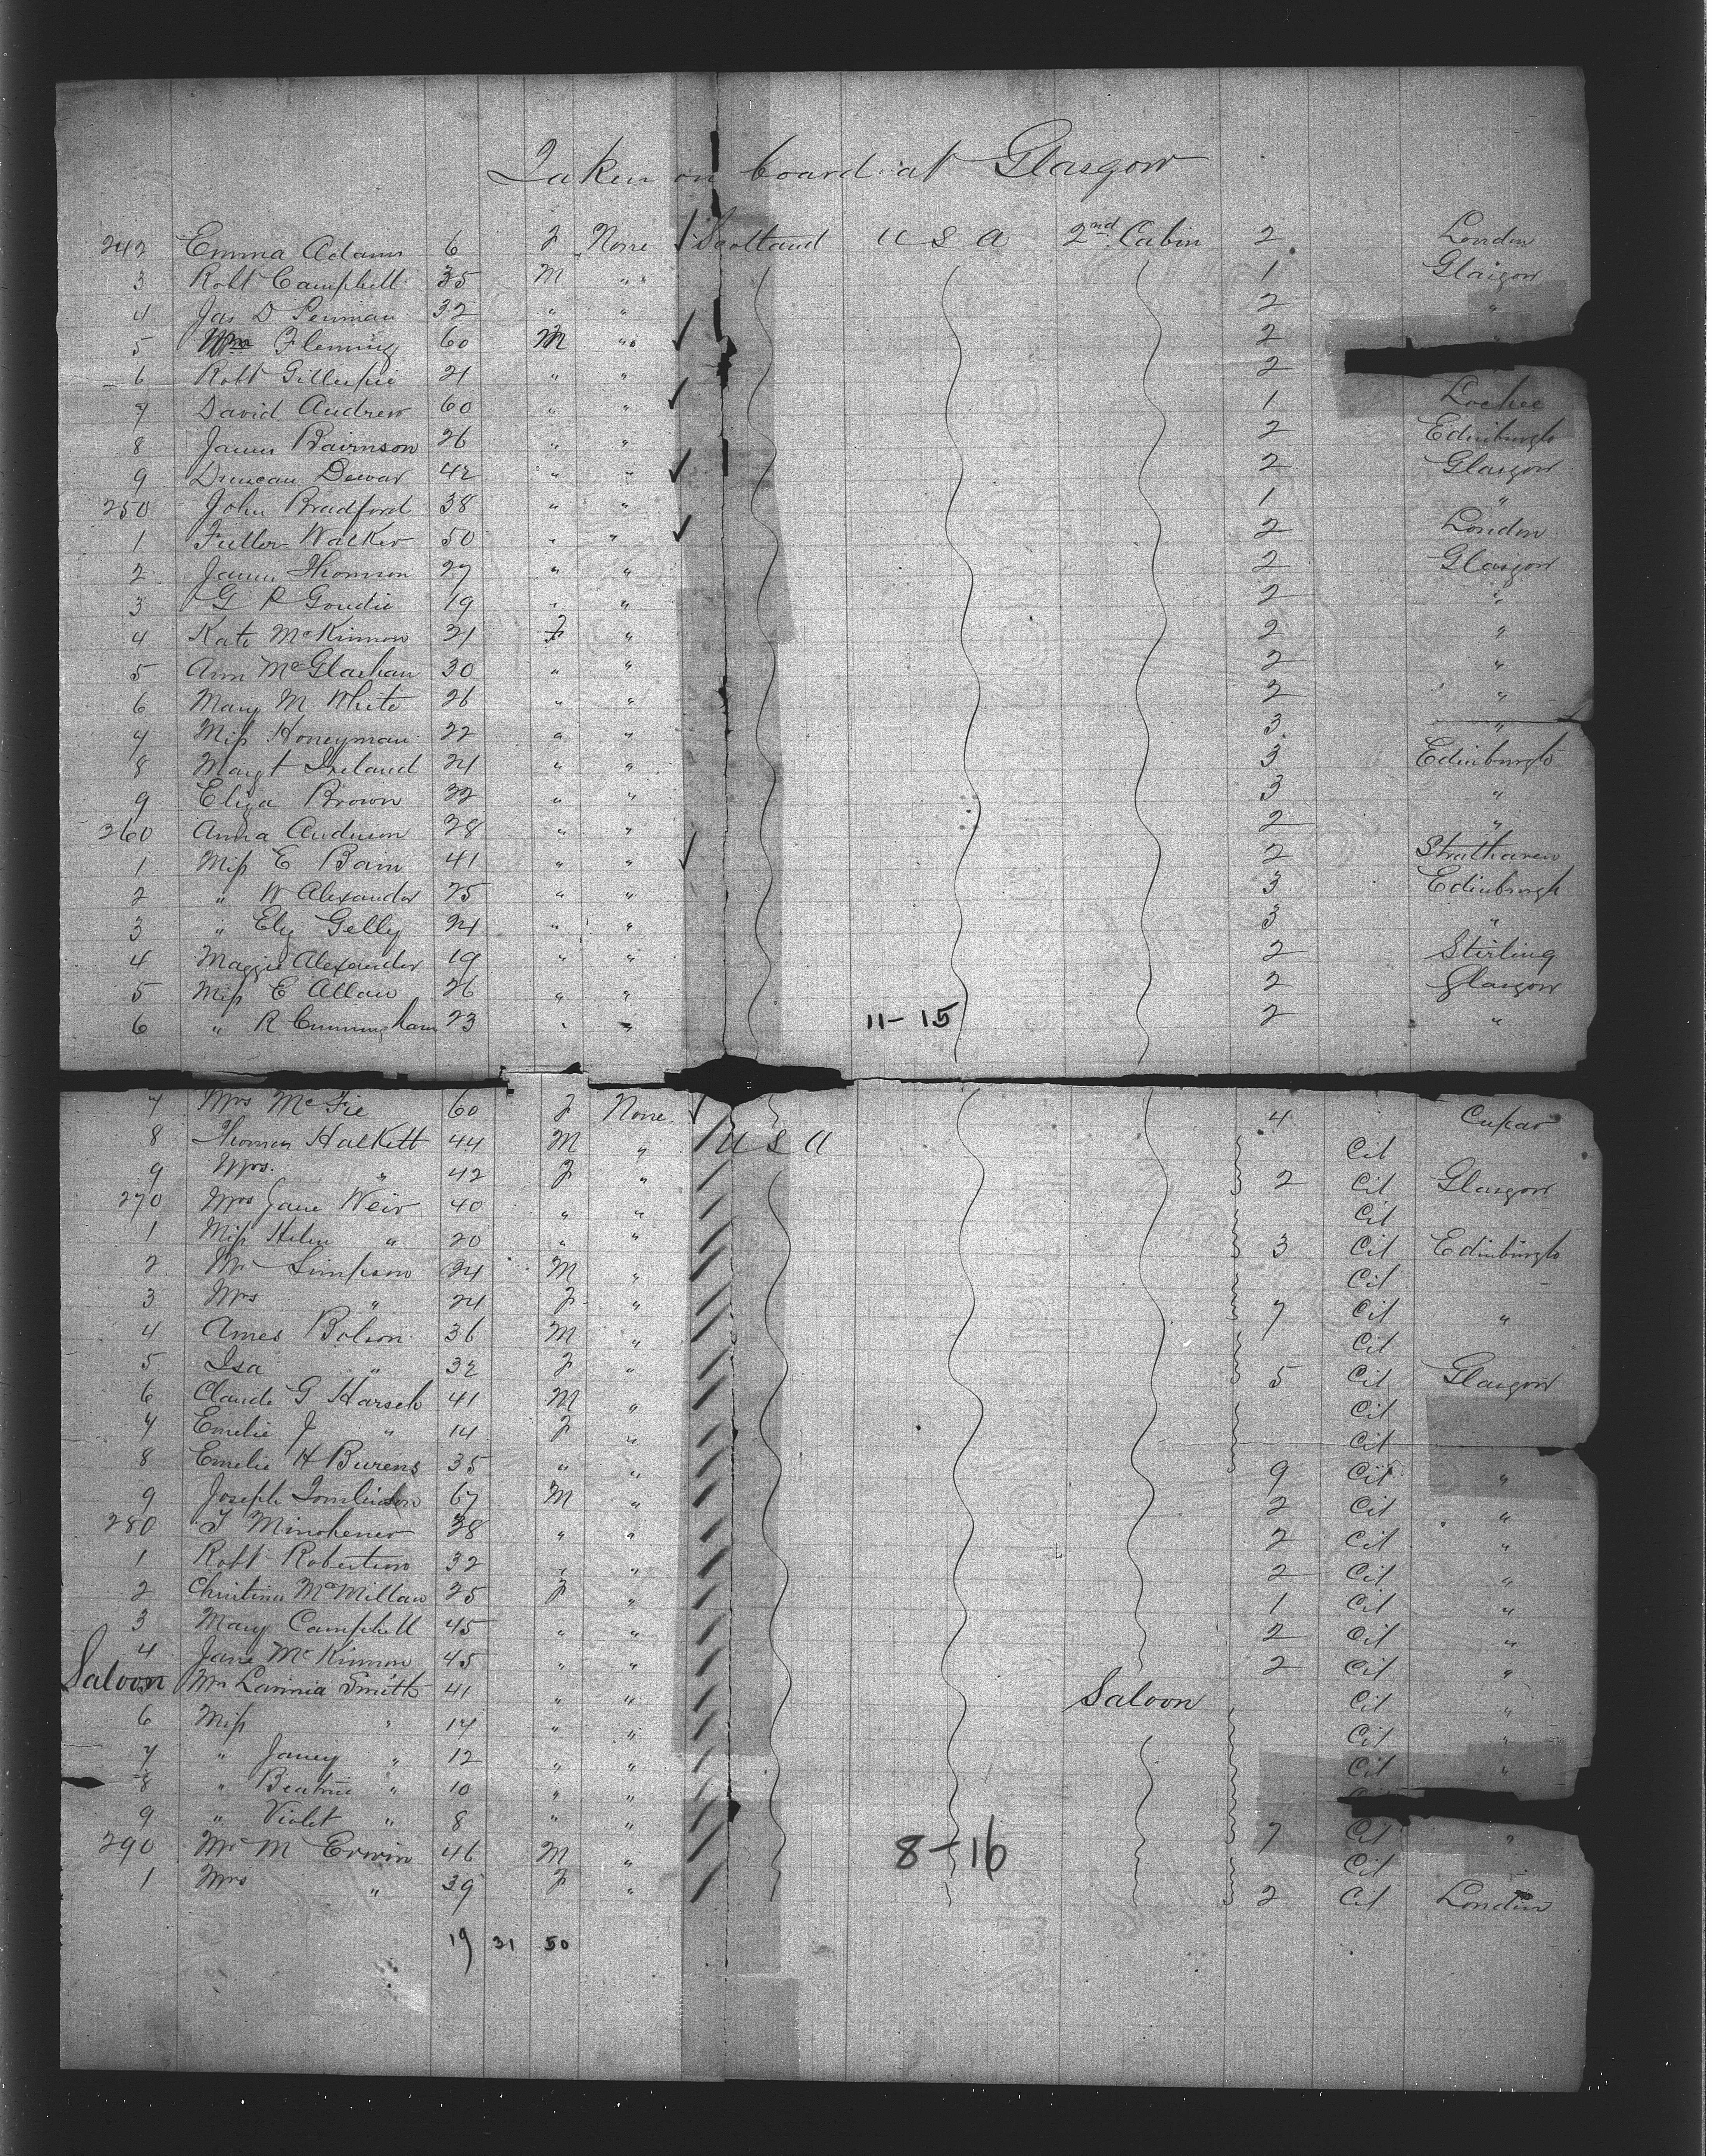 Taken on board at Glasgow
242 Emma Adams 6 F None Scotland U S A 2nd Cabin 2 London
3 Robt Campbell 35 M " 1 Glasgow
4 Jas D Penman 32 " " 2 "
5 Wm Fleming 60 M " 2 "
6 Robt Gillespie 21 " " 2
7 David Andrew 60 " " 1 Lochee
8 James Bairnson 26 " " 2 Edinburgh
9 Duncan Dewar 42 " " 2 Glasgow
250 John Bradford 38 " " 1 "
1 Fuller Walker 50 " " 2 London
2 James Thomson 27 " " 2 Glasgow
3 G P Goudie 19 " " 2 "
4 Kate McKinnon 21 F " 2 "
5 Ann McGlashan 30 " " 2 "
6 Mary M White 26 " " 2 "
7 Miss Honeyman 22 " " 3 "
8 Margt Ireland 24 " " 3 Edinburgh
9 Eliza Brown 22 " " 3 "
260 Anna Anderson 28 " " 2 "
1 Miss E Bain 41 " " 2 Strathaven
2 " W Alexander 25 " " 3 Edinburgh
3 " Eliz Gelly 24 " " 3 "
4 Maggie Alexander 19 " " 2 Stirling
5 Miss E Allan 26 " " 2 Glasgow
6 " R Cunningham 23 " " 11-15 2 "
7 Mrs McFie 60 F None 4 Cupar
8 Thomas Halkett 44 M " U S A Cit
9 Mrs. " 42 F " 2 Cit Glasgow
270 Mrs Jane Weir 40 " " Cit
1 Miss Helen " 20 " " 3 Cit Edinburgh
2 Mr Simpson 24 M " Cit
3 Mrs " 24 F " 7 Cit "
4 Ames Bolson 36 M " Cit
5 Isa " 32 F " 5 Cit Glasgow
6 Claude G Harsch 41 M " Cit
7 Emelie J " 14 F " Cit
8 Emelie H Burens 35 " " 9 Cit "
9 Joseph Tomlinson 67 M " 2 Cit "
280 T Minchener 38 " " 2 Cit "
1 Robt Robertson 32 " " 2 Cit "
2 Christina McMillan 25 F " 1 Cit "
3 Mary Campbell 45 " " 2 Cit "
4 Jane McKinnon 45 " " 2 Cit "
Saloon Mrs Lavinia Smith 41 " " Saloon Cit "
6 Miss " 14 " " Cit "
7 " Janey " 12 " " Cit "
8 " Beatrice " 10 " "
9 " Violet " 8 " " 7 Cit "
290 Mr M Erwin 46 M " 8-16 Cit
1 Mrs " 39 F " 2 Cit London
19 31 50